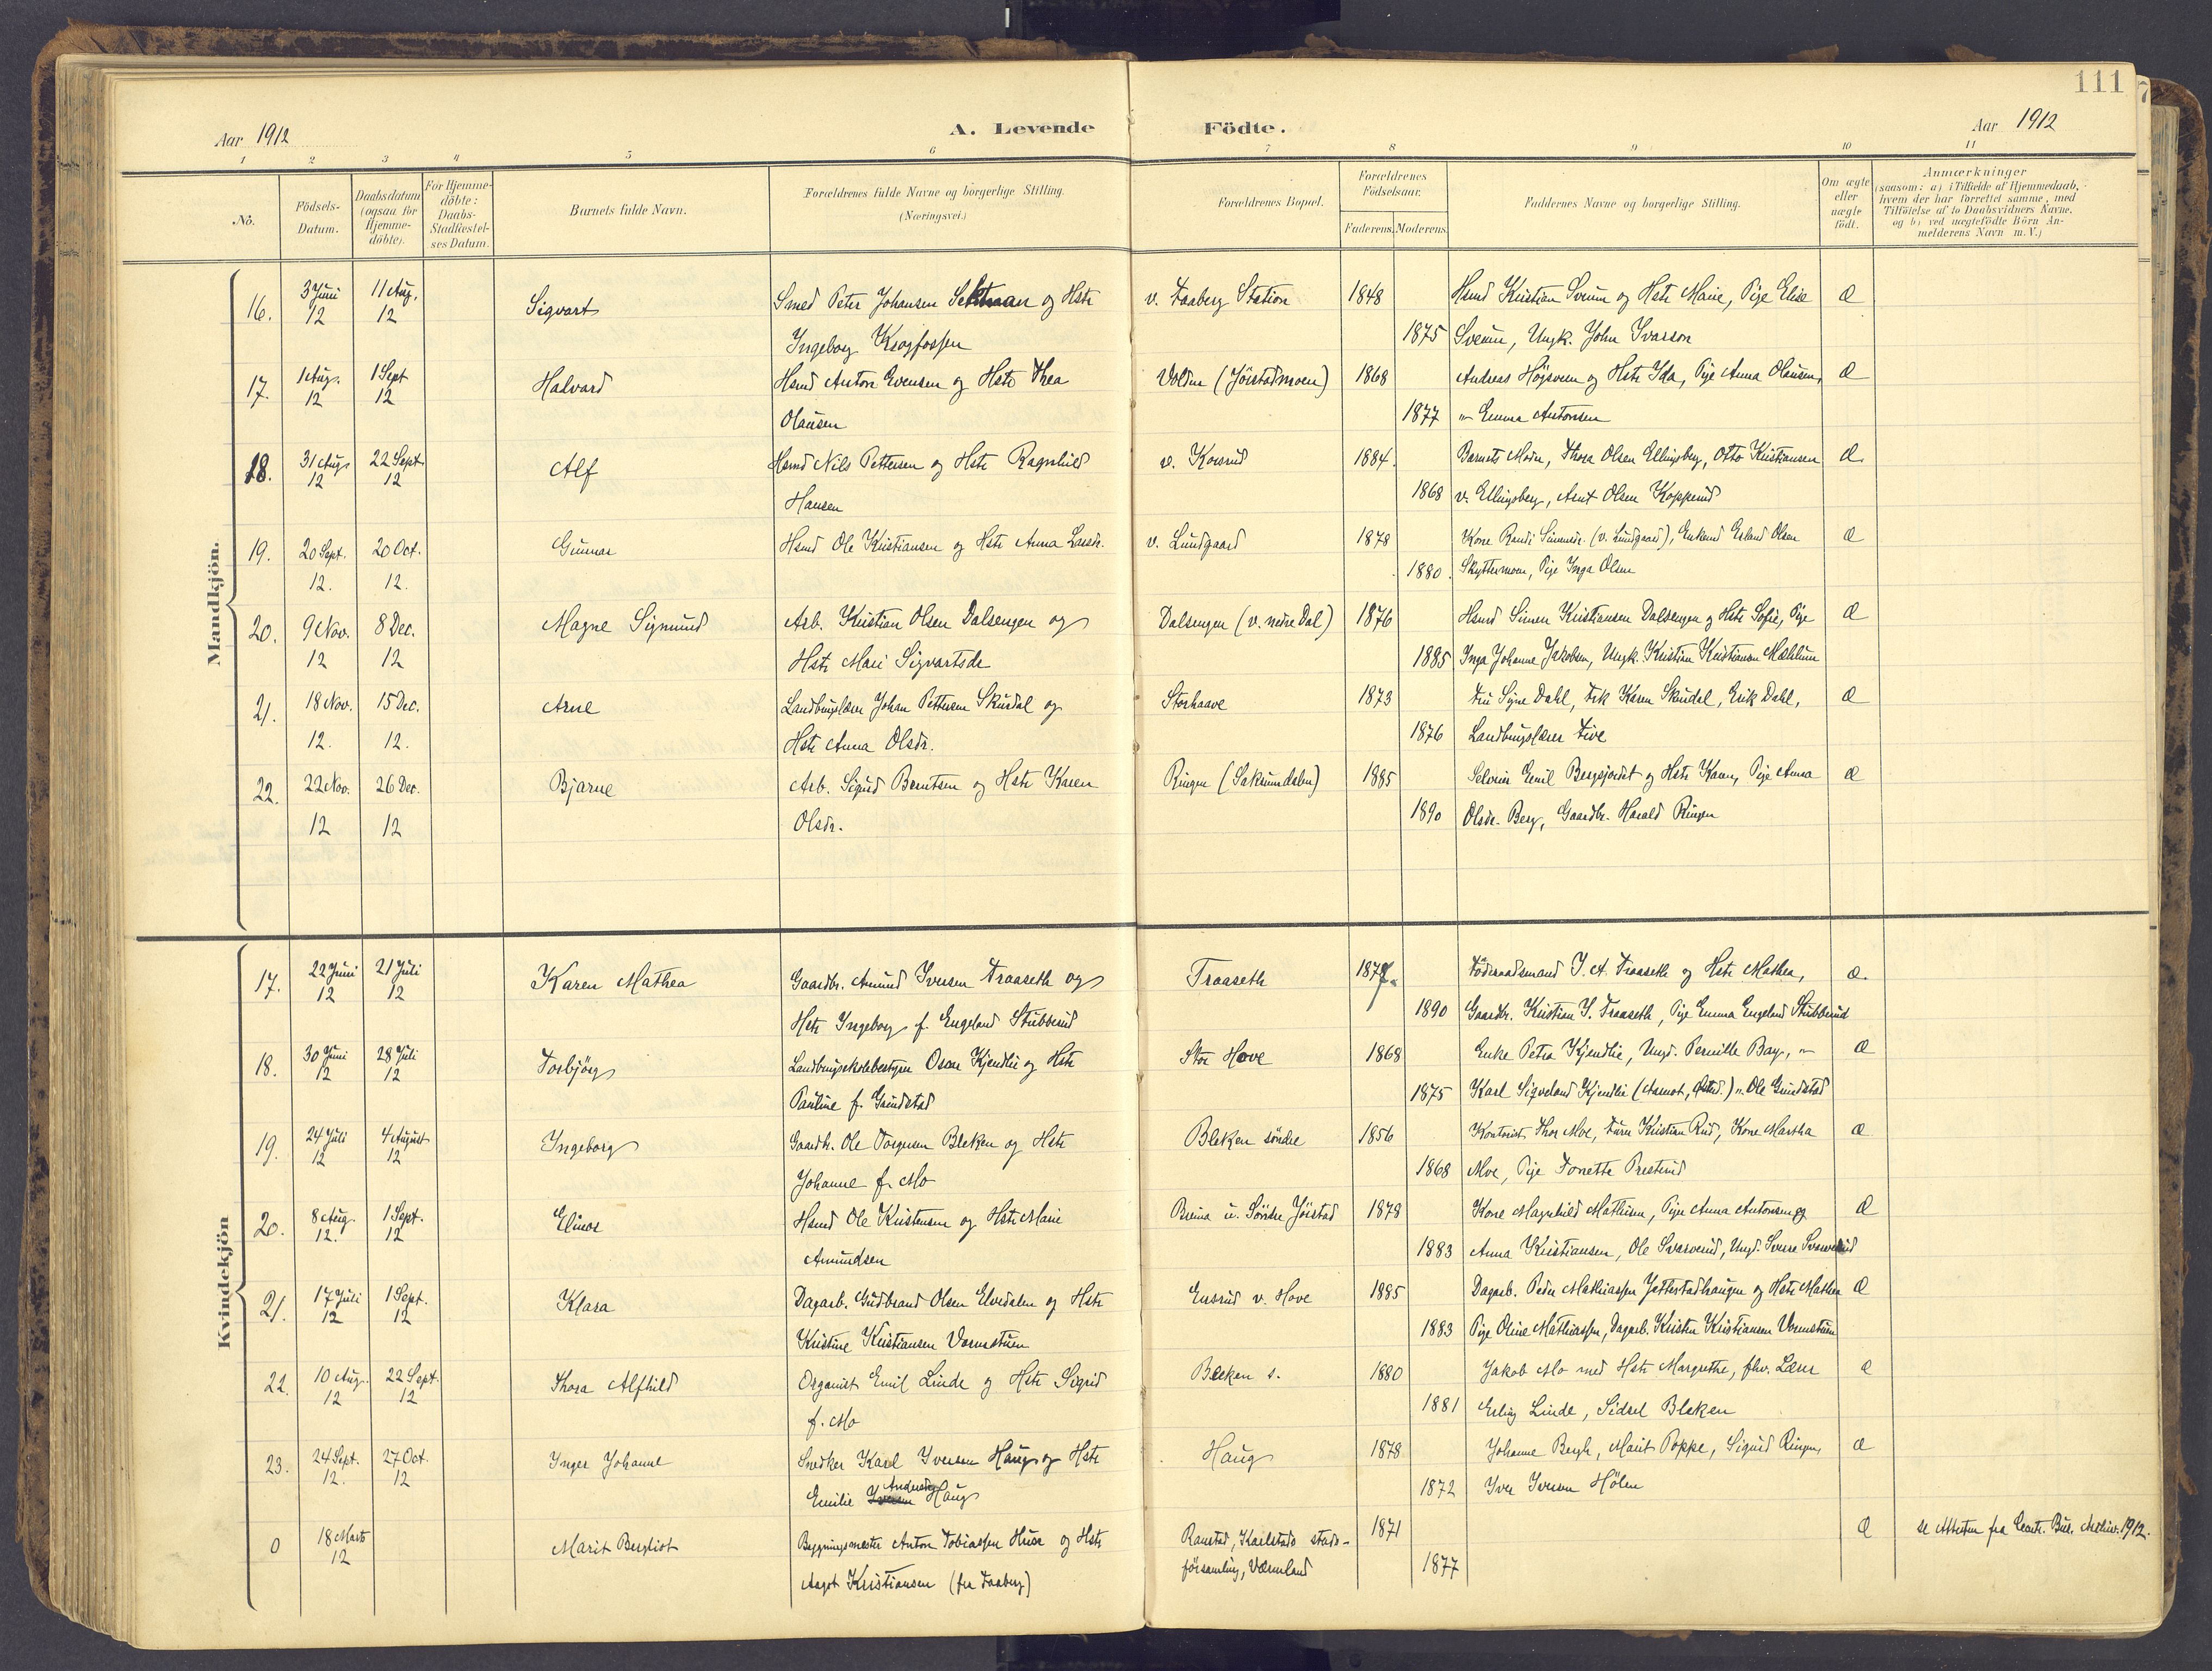 111
Aar 1912
A. Levende Födte.
Aar 1912
1 2 3 4 5 6 7 8 9 10 11
No.
Födsels-Datum.
Daabsdatum (ogsaa for Hjemme-döbte).
For Hjemme-döbte: Daabs-Stadfæstel-ses Datum.
Barnets fulde Navn.
Forældrenes fulde Navne og borgerlige Stilling.
(Næringsvei.)
Forældrenes Bopæl.
Forældrenes Födselsaar.
Faderens. Moderens.
Faddernes Navne og borgerlige Stilling.
Om ægte eller uægte födt.
Anmærkninger
(saasom: a) i Tilfælde af Hjemmedaab,
hvem der har forrettet samme, med
Tilföielse af to Daabsvidners Navne,
og b) ved uægtefödte Börn An-
melderens Navn m. V.)
Mandkjön.
16. 3 Juni 12 11 Aug. 12 Sigvart Smed Peter Johansen og Hstr v. Faaberg Station 1848 Hsmd Kristian Sveum og Hstr Marie, Pige Elise Æ
Ingeborg Krogfossen 1875 Sveum, Ungk. John Ivarson
17. 1 Aug. 12 1 Sept 12 Halvard Hsmd Anton Evensen og Hstr Thea Volden (Jörstadmoen) 1868 Andreas Högsveen og Hstr Ida, Pige Anna Olausen, Æ
Olausen 1877 " Emma Antonsen
18. 31 Aug 12 22 Sept 12 Alf Hsmd Nils Pettersen og Hstr Ragnhild v. Korsrud 1884 Barnets Moder, Thora Olsen Ellingsberg, Otto Kristiansen Æ
Hansen 1868 v. Ellingsberg, Arnt Olsen Kopperud
19. 20 Sept. 12. 20 Oct. 12. Gunnar Hsmd Ole Kristiansen og Hstr Anna Larsdr. v. Lundgaard 1878 Kone Randi Simensdr. (v. Lundgaard), Enkemd Erland Olsen Æ
1880. Skyttermoen, Pige Inga Olsen
20. 9 Nov. 12 8 Dec. 12 Magne Sigmund Arb. Kristian Olsen Dalsengen og Dalsengen (v. nedre Dal) 1876 Hsmd Simen Kristiansen Dalsengen og Hstr Sofie, Pige Æ
Hstr Mari Sigvartsdr 1885 Inga Johanne Jakobsen, Ungk. Kristian Kristiansen Mæhlum
21. 18 Nov. 12. 15 Dec. 12. Arne Landbrugslærer Johan Pettersen Skudal og Storhaave 1873 Fru Signe Dahl, Frk Karen Skudal, Erik Dahl, Æ
Hstr Anna Olsdr. 1876 Landbrugslærer Five
22. 22 Nov. 12 26 Dec. 12 Bjarne Arb. Sigurd Berntsen og Hstr Karen Ringen (Saksumdalen) 1885 Selveier Emil Bergsjordet og Hstr Karen, Pige Anna Æ
Olsdr. 1890 Olsdr. Berg, Gaardbr. Harald Ringen
Kvindekjön
17. 22 Juni 12 21 Juli 12 Karen Mathea Gaardbr. Amund Iversen Traaseth og Traaseth Föderaadsmand I. A. Traaseth og Hstr Mathea, Æ.
Hstr Ingeborg f. Engeland Stubberud 1890 Gaardbr. Kristian I. Traaseth, Pige Emma Engeland Stubberud
18. 30 Juni 12 28 Juli 12 Torbjörg Landbrugsskolebestyrer Oscar Kjendlie og Hstr Stor Hove 1868 Enke Petra Kjendlie, Ungd. Pernille Bay, " Æ
Pauline f. Grindstad 1875 Karl Sigveland Kjendlie " Ole Grindstad
19. 24 Juli 12 4 August 12 Ingeborg Gaardbr. Ole Torgersen Bleken og Hstr Bleken söndre 1856 Kontorist Thor Moe, Kristian Rud, Kone Martha Æ
Johanne f. Mo 1868 Moe, Pige Tonette Presterud
20. 8 Aug. 12. 1 Sept. 12 Elinor Hsmd Ole Kristensen og Hstr Marie Söndre Jörstad 1878 Kone Magnhild Mathisen, Pige Anna Antonsen og Æ
Amundsen 1883 Anna Kristiansen, Ole Svarverud, Ungd. Sverre Svarverud
21. 17 Juli 12 1 Sept. 12 Klara Dagarb. Gudbrand Olsen Elvedalen og Hstr Ensrud v. Hove 1885 Dagarb. Peder Mathiassen Jettestadhaugen og Hstr Mathea Æ
Kristine Kristiansen Vormstuen 1883 Pige Oline Mathiassen, Dagarb. Kristen Kristiansen Vormstuen
22. 10 Aug. 12 22 Sept. 12 Thora Alfhild Organist Emil Linde og Hstr Sigrid Bleken s. 1880 Jakob Mo med Hstr Margrethe, fhv. Lærer Æ
f. Mo 1881 Erling Linde, Sidsel Bleken
23. 24 Sept. 12. 27 Oct. 12 Inger Johanne Snedker Karl Iversen Haug og Hstr Haug 1878 Johanne Bergh, Marit Poppe, Sigurd Ringen, Æ
Emilie Haug 1872 Iver Iversen Hölen
0 18 Marts 12 Marit Bergliot Bygningsmester Anton Tobiassen Huse og Hstr Ranstad, Karlstads stads- 1871 Æ se Attesten fra Centr. Bur. Arkiv. 1912.
Aagot Kristiansen (fra Faaberg) församling, Värmland 1877